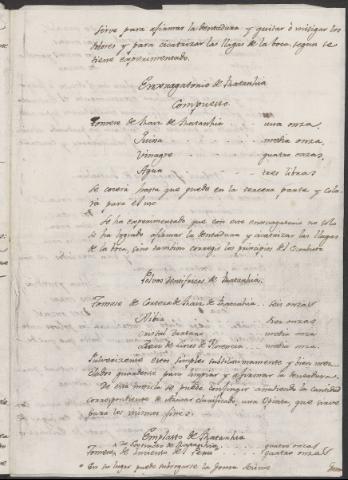 Sirve para afirmar la dentadura y quitar ó mitigar los
dolores y para cicatrizar las llagas de la boca, segun se
tiene experimentado.
Enxuagatorio de Ratanhia
Compuesto
Tomese de Raiz de Ratanhia . . . una onza.
Quina . . . media onza.
Vinagre . . . quatro onzas.
Agua . . . tres libras
Se cocerá hasta que quede en la tercera parte y cola
rá para el uso
Se ha experimentado que con este enxuagatorio no solo
se ha logrado afirmar la dentadura y cicatrizar las llagas
de la boca, sino tambien corregir los principios de
Polvos dentifricos de Ratanhia
Tomese de Corteza de Raiz de Ratanhia . . seis onzas
. . . tres onzas
Cristal Tartaro . . . media onza
Raiz de Lirios de Florencia . . media onza.
Pulverizense estos simples sutilisimamente y bien mez
clados guardense para limpiar y afirmar la dentadura.
De esta mezcla se puede configurar añadiendo la cantidad
correspondiente de Azucar clarificado, una Opiata, que sirve
para los mismos fines.
Emplasto de Ratanhia
de Extracto de Ratanhia . . . quatro onzas
Tomese de Ungüento de . . . quatro onzas
En su lugar puede subrogarse la Goma